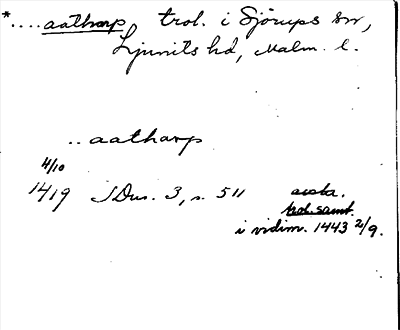 *....aatharp trol. i Sjörups sn,
Ljunits hd, Malm. l.
..aatharp
4/10
1419 SDns. 3, s. 511 avskr.
trol. samt.
i vidim. 1443 2/9.